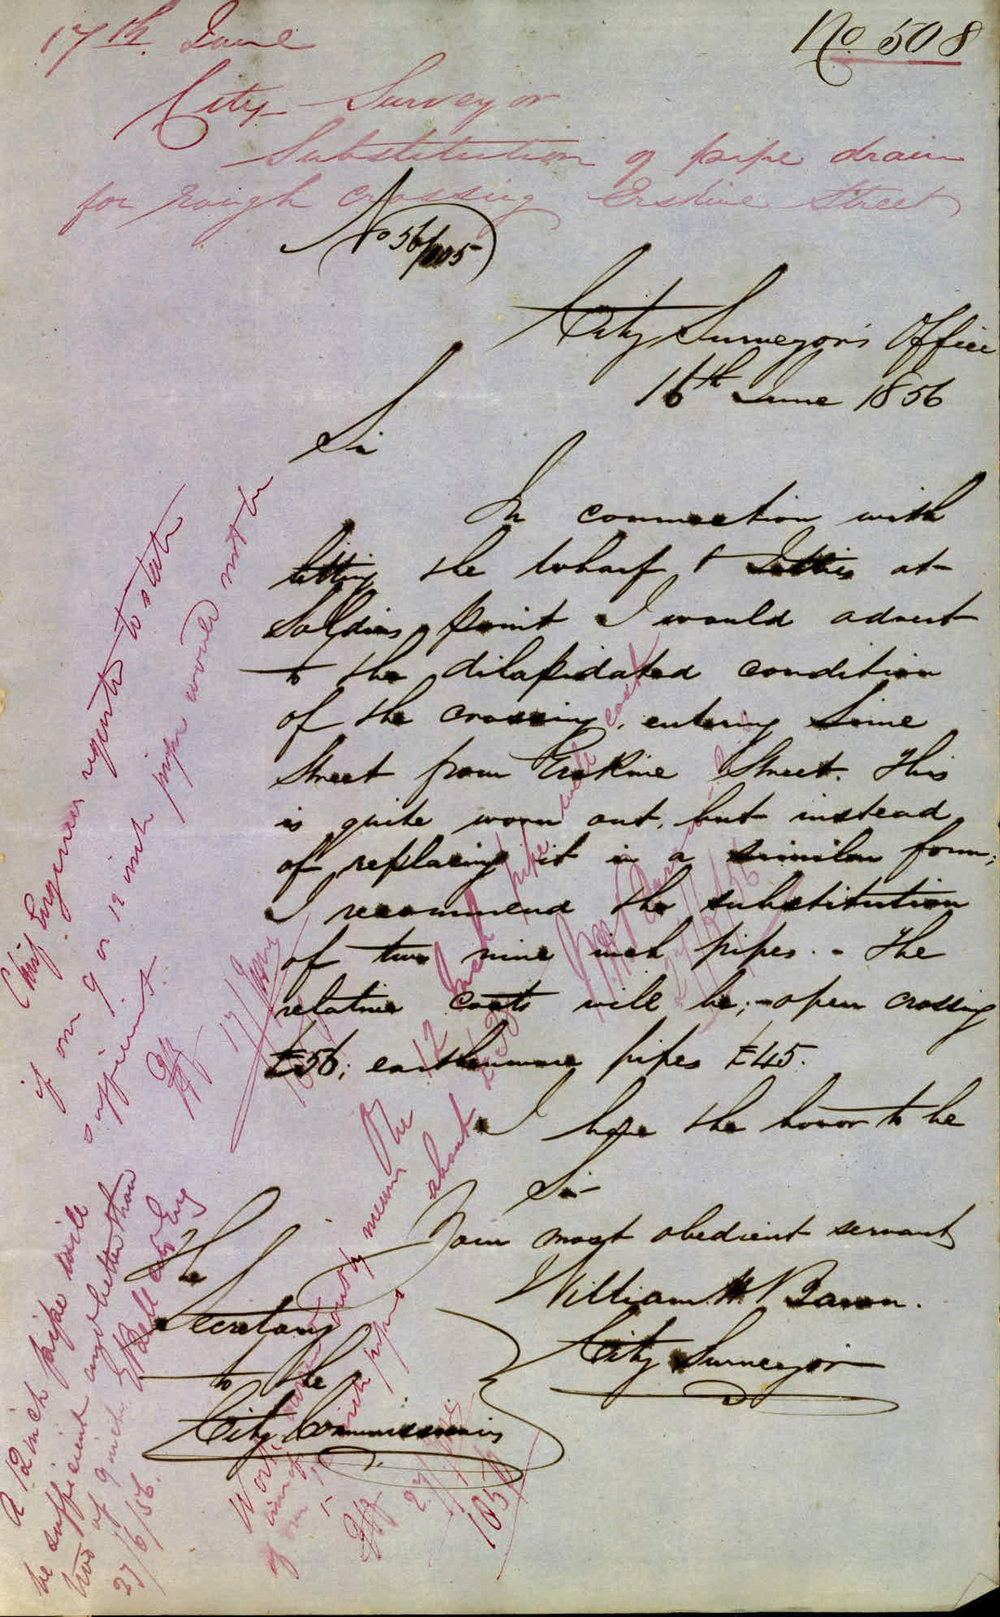 17th June
No 508
City Surveyor
Substitution of pipe drain
for rough crossing Erskine Street
No 56/
City Surveyor's Office
16th June 1856
Sir
In connection with
letting the Wharf & Jetties at
Soldiers point I would advert
to the dilapidated condition
of the crossing, entering Lime
Street from Erskine Street. This
is quite worn out, but instead
of replacing it in a similar form,
I recommend the substitution
of two nine inch pipes. - The
relative costs will be; - open crossing
£56; earthenware pipes £45.
I have the honor to be
Sir
Your most obedient servant
William
City Surveyor
The
Secretary
to the
City Commissioners
Chief Engineer to state
if one 9 or 12 inch pipe would not be
sufficient.
17/June
A 12 inch pipe will
be sufficient and better than
two of 9 inch
City Eng
27/6/56.
The 12 inch pipe will cost
about
27/6/56
of 12 inch pipe
27/
1856